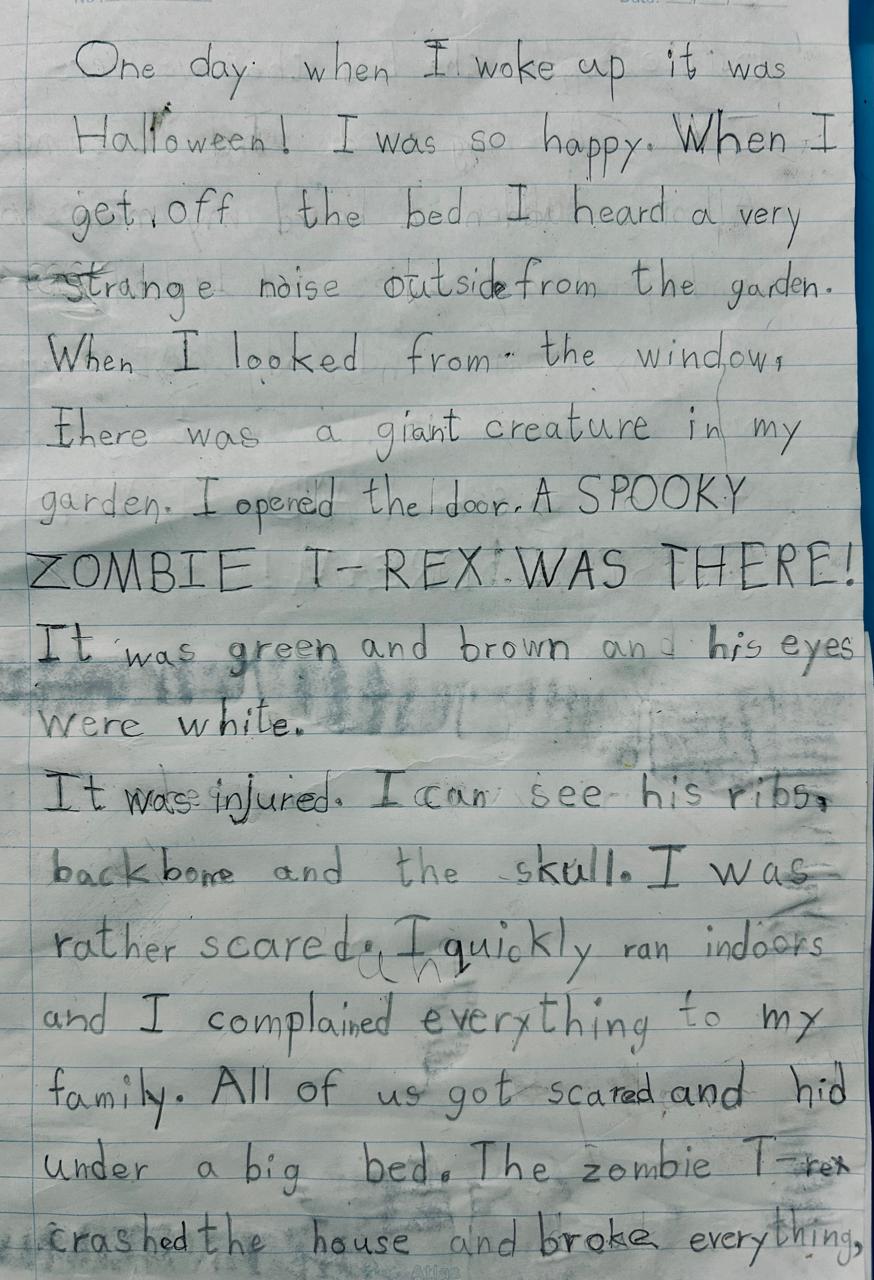 One day when I woke up it was
Halloween! I was so happy. When I
get off the bed I heard a very
strange noise outside from the garden.
When I looked from the window,
there was a giant creature in my
garden. I opened the door. A SPOOKY
ZOMBIE T-REX WAS THERE!
It was green and brown and his eyes
were white.
It was injured. I can see his ribs,
backbone and the skull. I was
rather scared. I quickly ran indoors
and I complained everything to my
family. All of us got scared and hid
under a big bed. The zombie T-rex
crashed the house and broke everything,